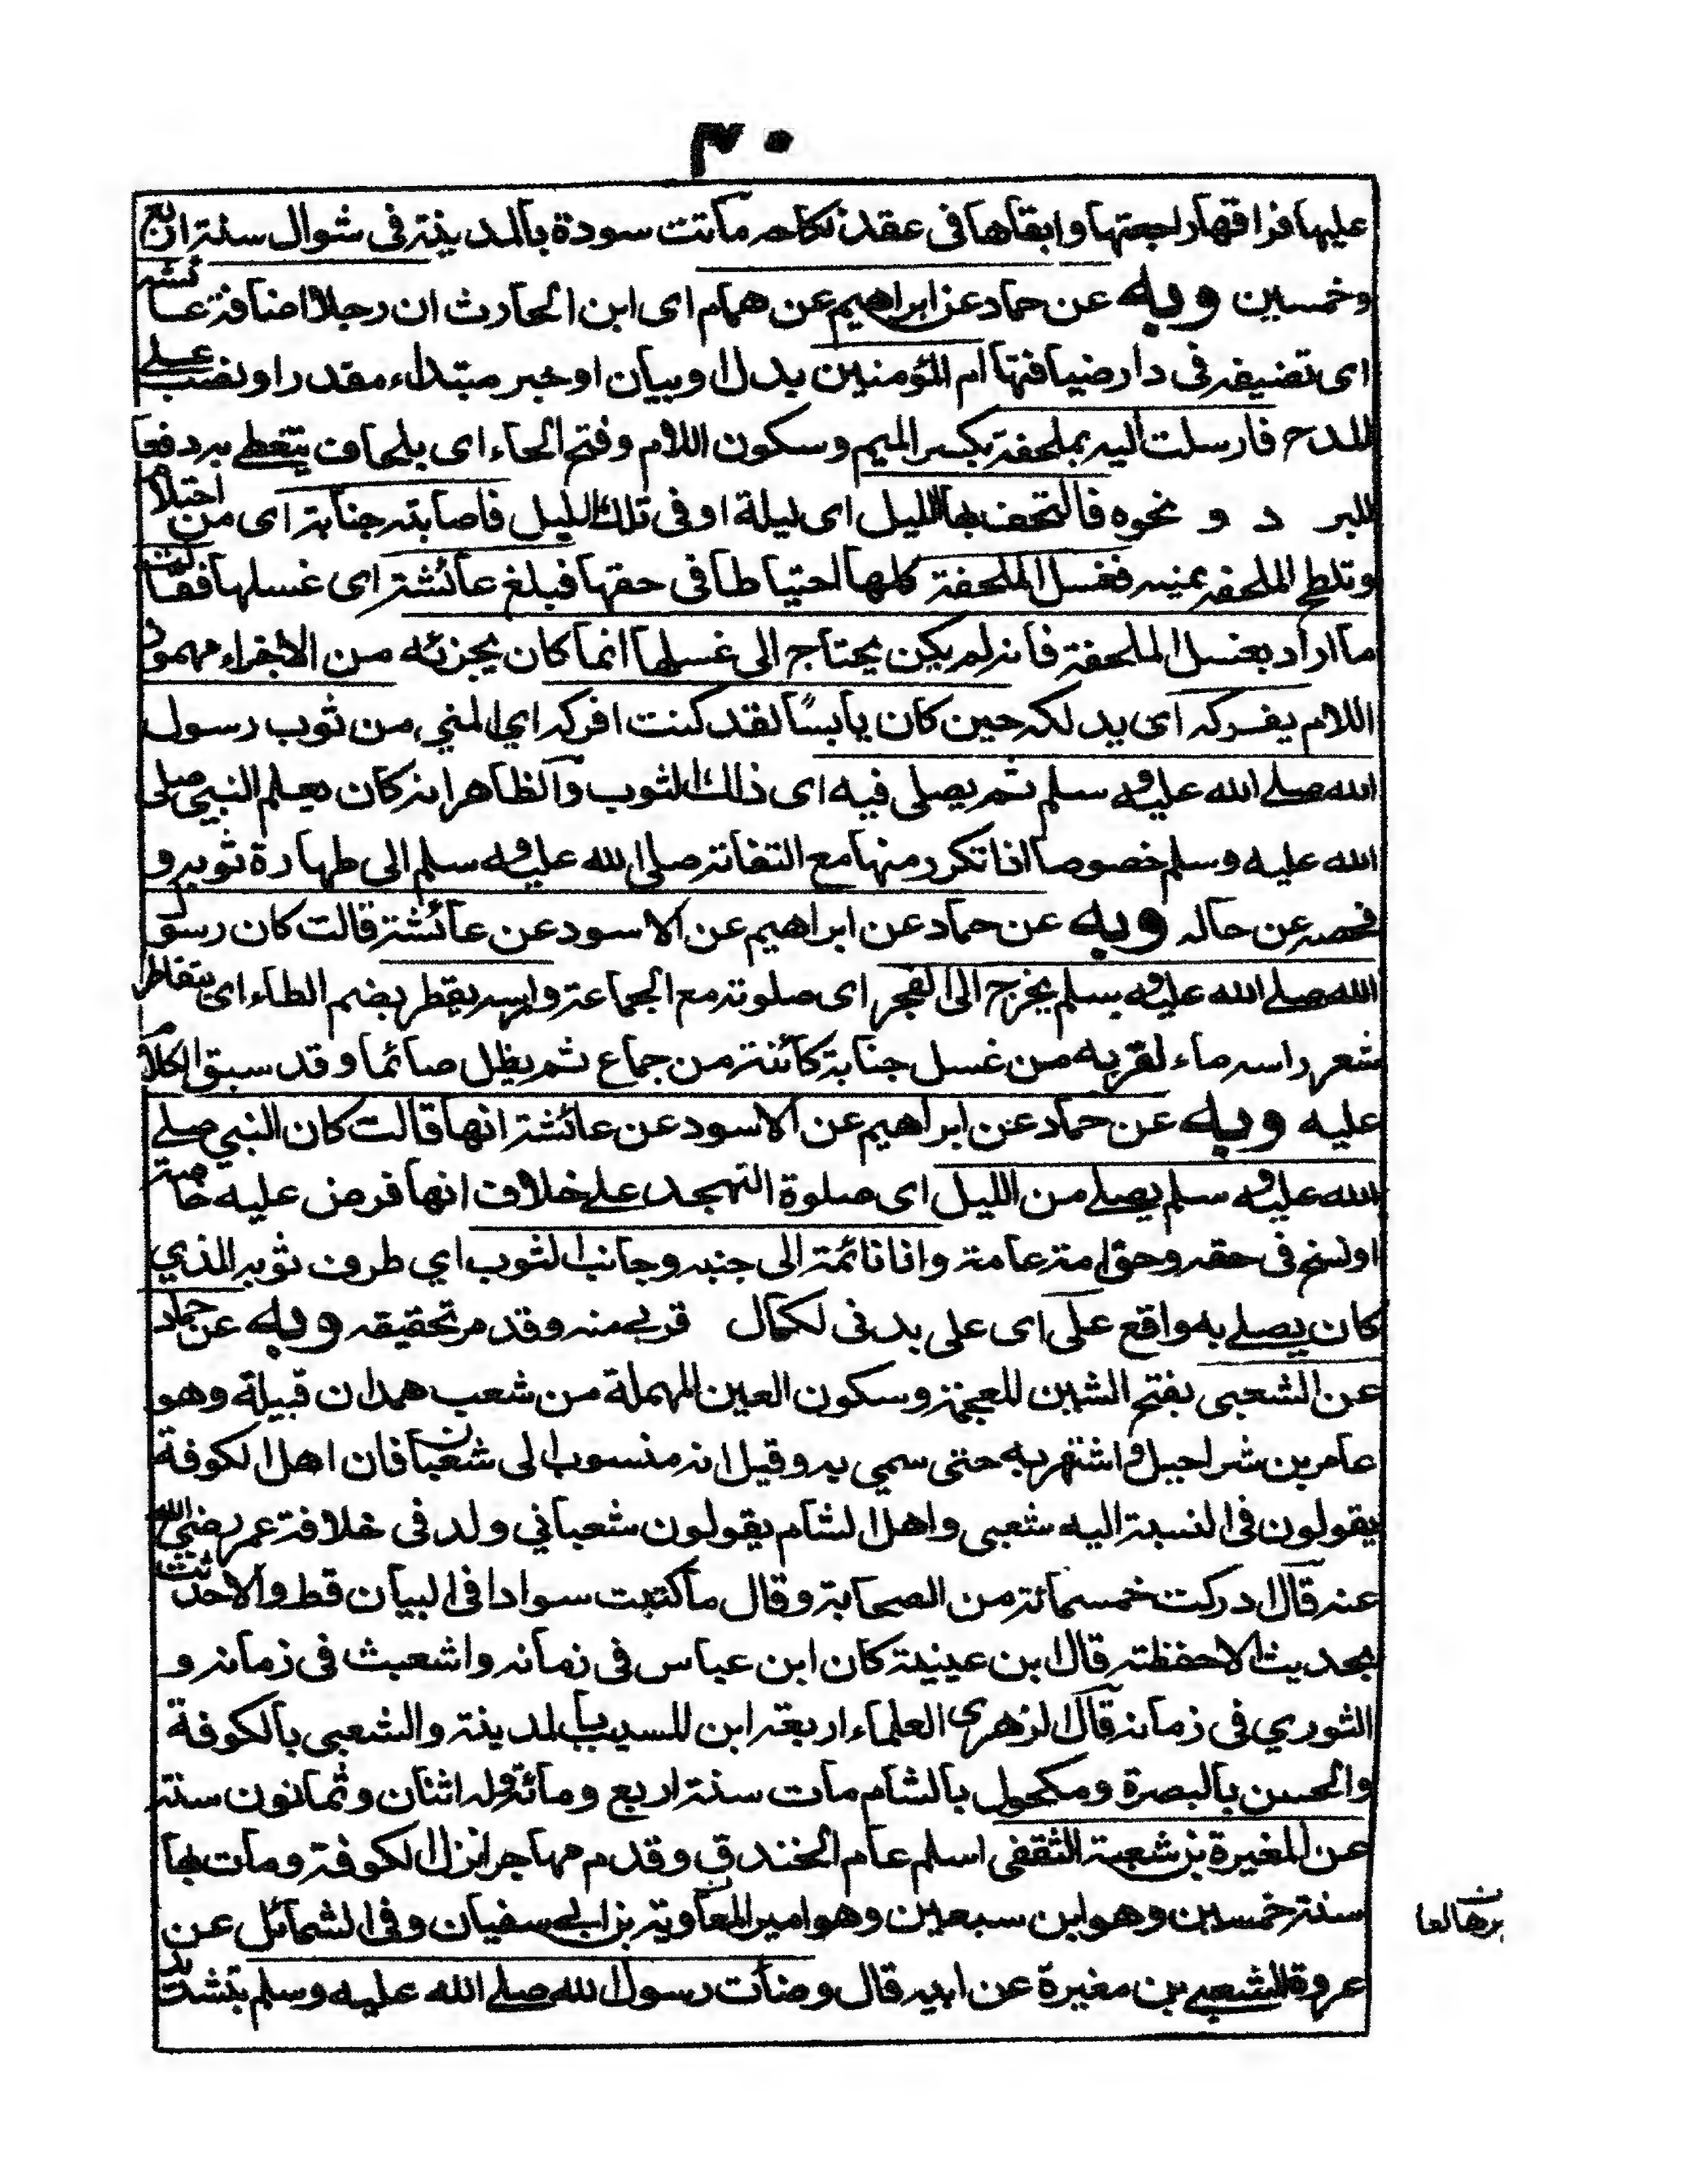 ٣٠
عليها فراقها راجعتها وابقاها فى عقد نكاحه ماتت سودة بالمدينة فى شوال سنة اربع
وخمسين وبه عن حماد عن ابراهيم عن همام اى ابن الحارث ان رجلا اضافة عائشه
اى تضيفه فى دار ضيافتها ام المؤمنين بدل او بيان او خبر مبتداء مقدر او نصب على
المدح فارسلت اليه بملحفة بكسر الميم وسكون اللام وفتح الحاء اى بلحاف يتغطى به دفعا
للبر د و نحوه فالتحف بها الليل اى ليلة او فى تلك الليل فاصابته جنابة اى من احتلام
وتلطخ الملحفه بمنيه فغسل الملحفة كلها احتياطا فى حقها فبلغ عائشة اى غسلها فقالت
ما اراد بغسل الملحفة فانه لم يكن يحتاج الى غسلها انما كان يجزئه من الاجزاء مهموز
اللام يفركه اى يدلكه حين كان يابسًا لقد كنت افركه اي المني من ثوب رسول
الله صلى الله عليه و سلم ثم يصلى فيه اى ذلك الثوب والظاهر انه كان بعلم النبي صلى
الله عليه وسلم خصوصا اذا تكرر منها مع التفاته صلى الله عليه و سلم الى طهارة ثوبه و
فحصه عن حاله وبه عن حماد عن ابراهيم عن الاسود عن عائشة قالت كان رسول
الله صلى الله عليه و سلم يخرج الى الفجر اى صلوته مع الجماعة وراسه يقطر بضم الطاء اى يتقاطر
شعر راسه ماء لقربه من غسل جنابة كائنة من جماع ثم يظل صائما وقد سبق الكلام
عليه وبه عن حماد عن ابراهيم عن الاسود عن عائشة انها قالت كان النبي صلى
الله عليه و سلم يصلى من الليل اى صلوة التهجد على خلاف انها فرض عليه خاصة
او نسخ فى حقه وحق امته عامة وانا نائمة الى جنبه وجانب الثوب اي طرف ثوبه الذي
كان يصلى به واقع على اى على بدنى لكمال قربى منه وقد مر تحقيقه وبه عن حماد
عن الشعبى بفتح الشين المعجمة وسكون العين المهملة من شعب همدان قبيلة وهو
عامر بن شراحيل واشتهر به حتى سمي به وقيل انه منسوب الى شعبان فان اهل الكوفة
يقولون فى النسبة اليه شعبى واهل الشام يقولون شعباني ولد فى خلافة عمر رضى الله
عنه قال ادركت خمسمائة من الصحابة وقال ما كتبت سوادا فى البيان قط ولا حدثت
بحديث الا حفظته قال ابن عيينة كان ابن عباس فى زمانه واشعبث فى زمانه و
الثوري فى زمانه قال الزهرى العلماء اربعة ابن المسيب بالمدينة والشعبى بالكوفة
والحسن بالبصرة ومكحول بالشام مات سنة اربع ومائة وله اثنان وثمانون سنة
عن المغيرة بن شعبة الثقفى اسلم عام الخندق وقدم مهاجرا نزل الكوفة ومات بها
سنة خمسين وهو ابن سبعين وهو امير المعاوية بن ابى سفيان وفى الشمائل عن
عروة الشعبى بن مغيرة عن ابيه قال وضأت رسول الله صلى الله عليه وسلم بتشديد